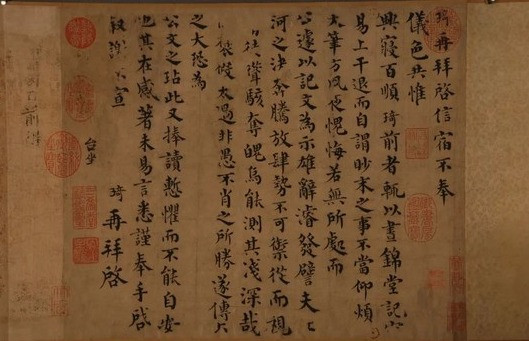 琦再拜啓信宿不奉
儀色共惟
興寢百順琦前者輒以晝錦堂記
易上干退而自謂眇末之事不當仰煩
大筆方夙夜愧悔若無所處而
公遽以記文為示雄辭濬發譬夫
河之決奔騰放肆勢不可禦從而視
聳駭奪魄烏能測其淺深哉
太過非愚不肖之所勝遂傳
之大恐為
公文之玷此又捧讀慙懼而不能自安
也其在感著未易言悉謹奉手啓
敘謝不宣 琦再拜啓
台坐